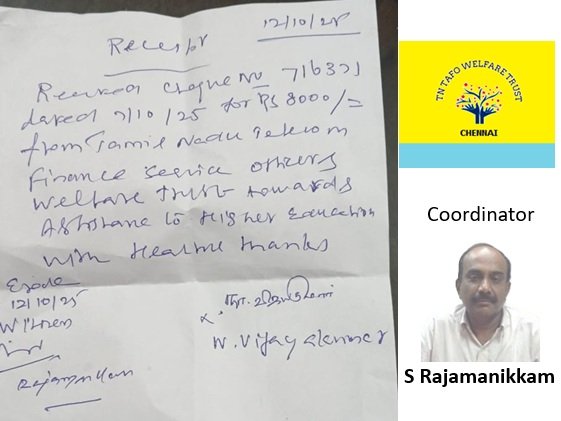 12/10/25
Receipt
Received cheque No 716371
dated 7/10/25 for Rs 8000/=
from Tamil Nadu Telecom
Finance Service Officers
Welfare Trust towards
Assistance to Higher Education
with Hearty thanks
Erode
12/10/25
Witness
Rajamanikkam
N. Vijayakumar
TN TAFO WELFARE TRUST
CHENNAI
Coordinator
S Rajamanikkam